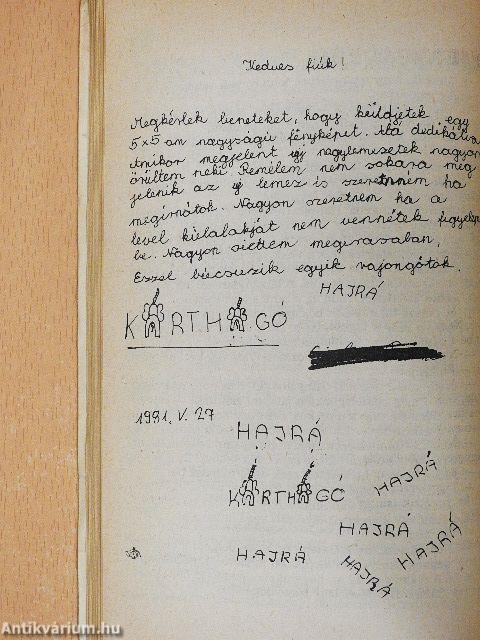 Kedves fiúk!
Megkérlek beneteket, hogy küldjétek egy
5×5-ön nagyságú fényképet.
Amikor megjelent új nagylemezetek nagyon
örültem neki. Remélem nem sokára meg
jelenik az új lemez is szeretném ha
megirnátok. Nagyon szeretném ha a
levél külalakját nem vennétek figyelem
be. Nagyon siettem megirásában.
Ezzel búcsuzik egyik rajongótok.
HAJRÁ
KARTHAGÓ
1981. V. 27
HAJRÁ
KARTHAGÓ
HAJRÁ
HAJRÁ
HAJRÁ
HAJRÁ
HAJRÁ
Antikvárium.hu